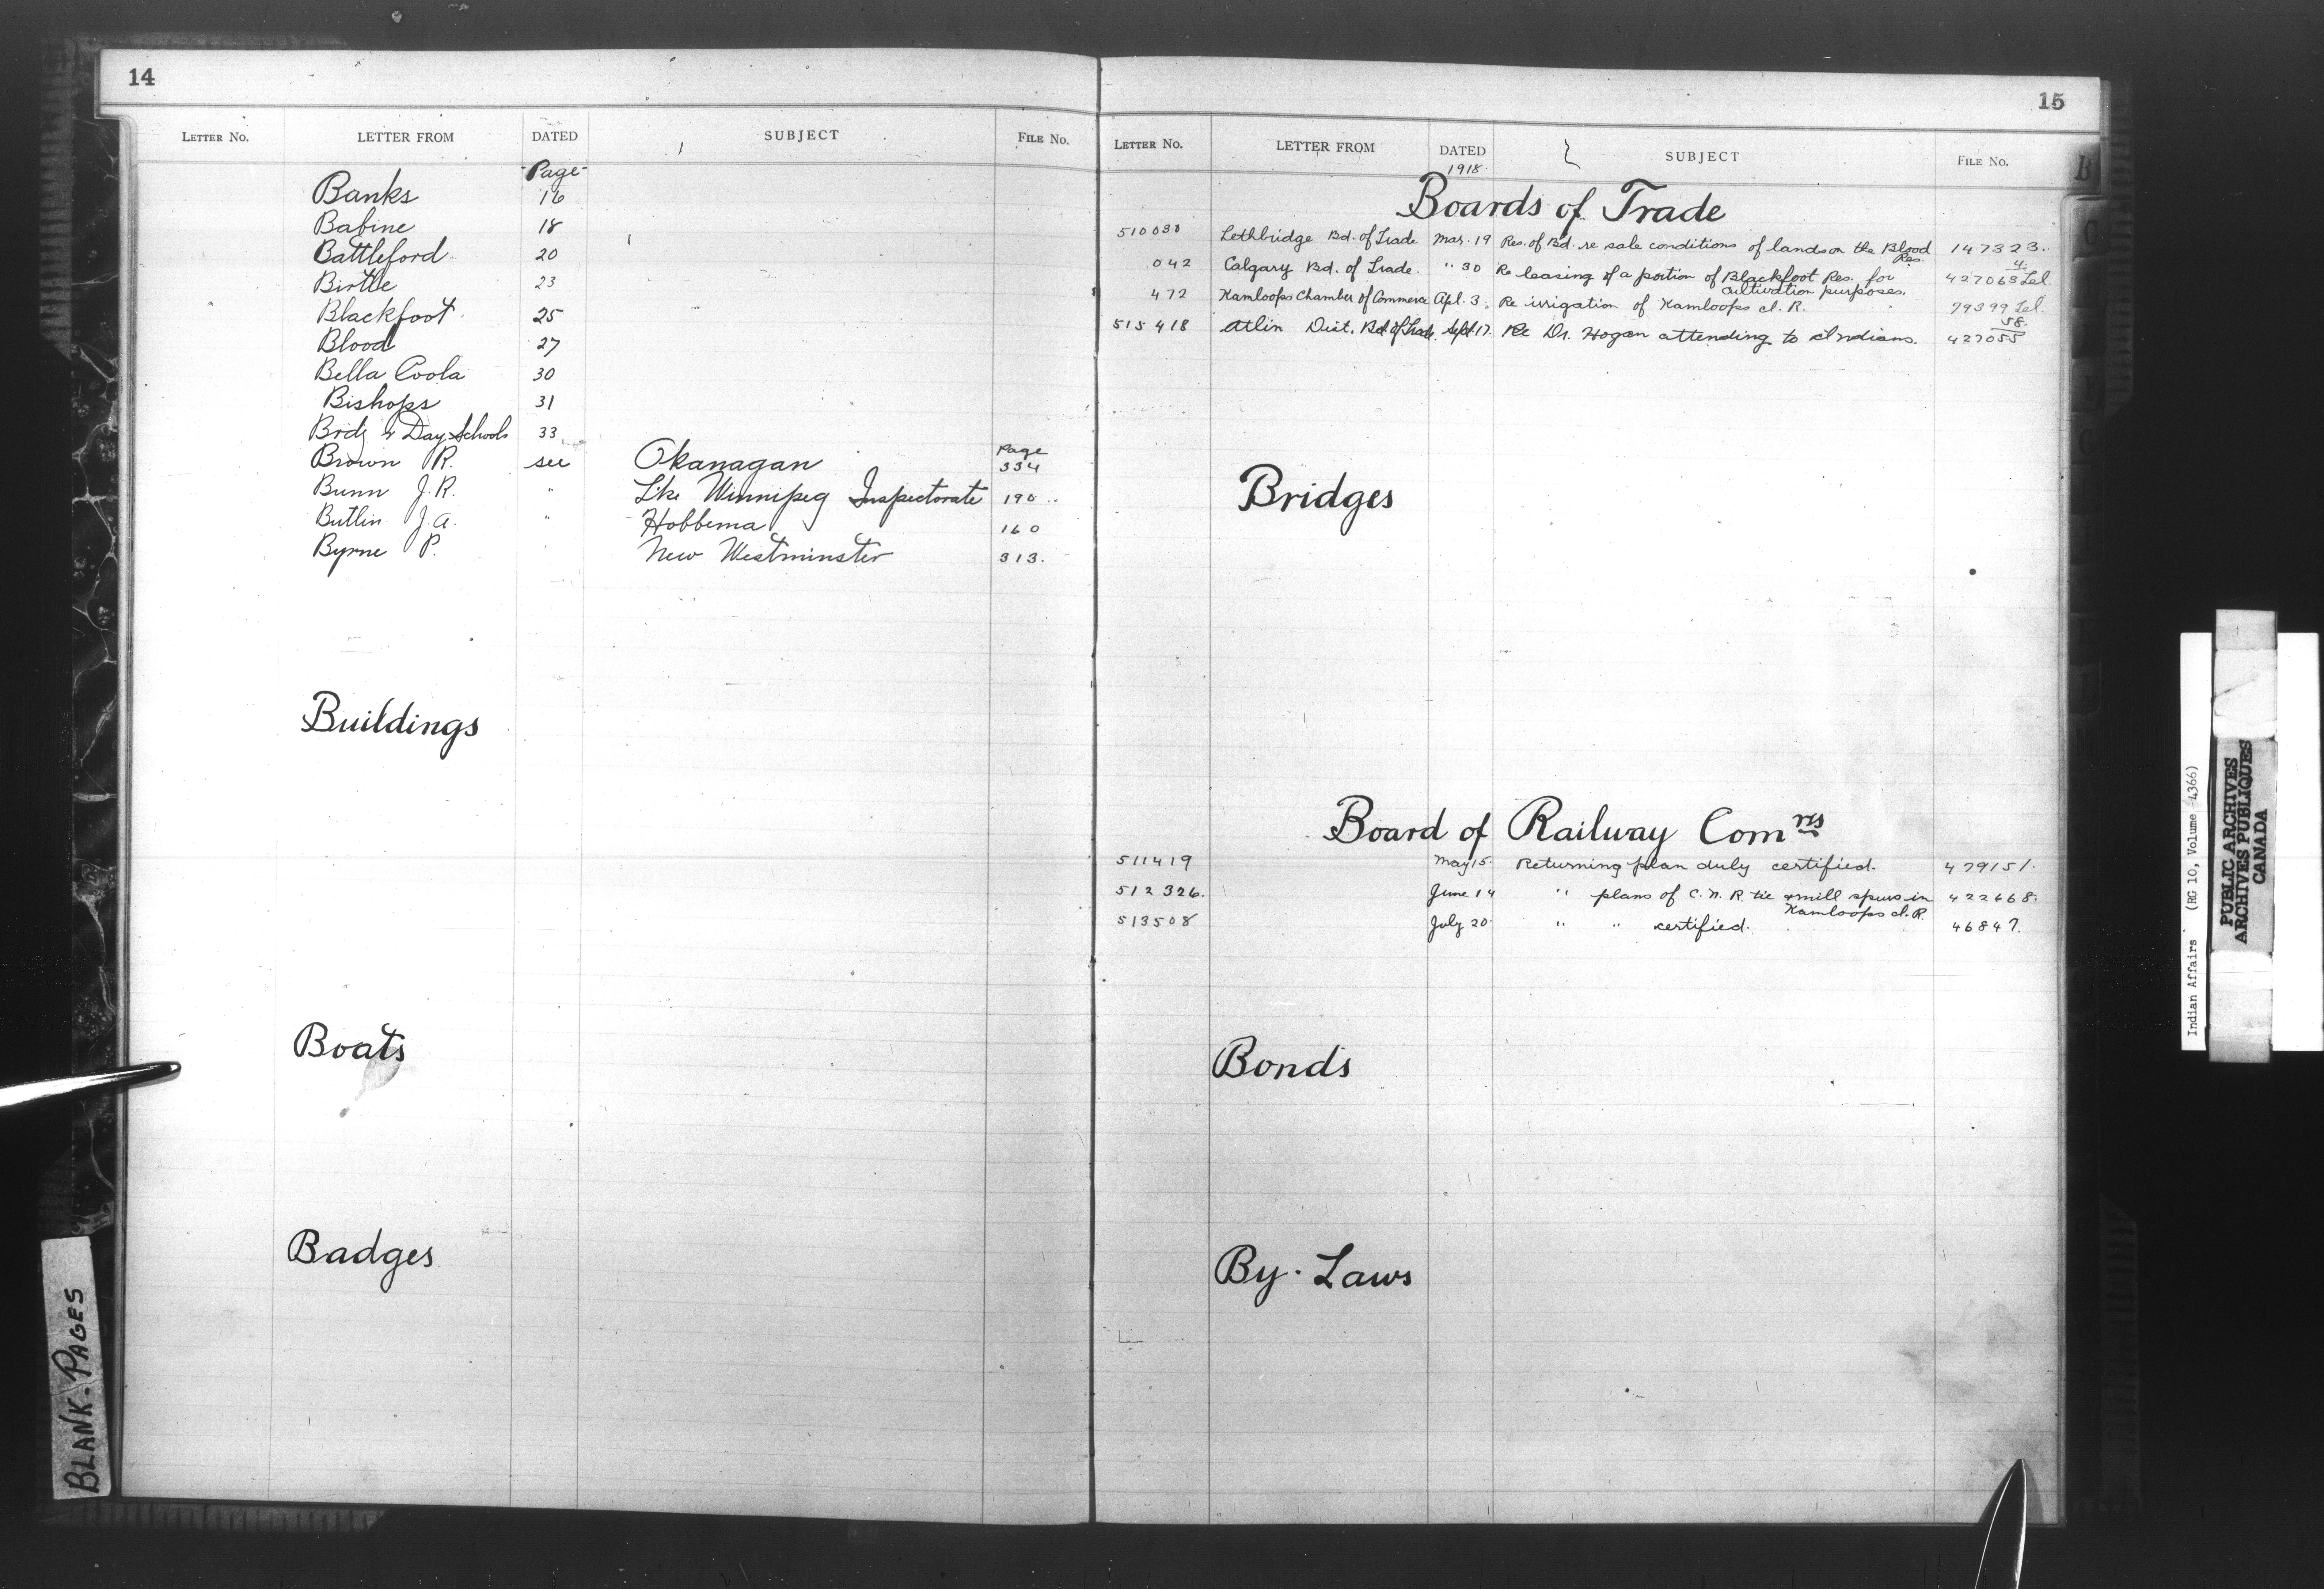 14
LETTER NO. LETTER FROM DATED SUBJECT FILE NO.
Page
Banks 16
Babine 18
Battleford 20
Birtle 23
Blackfoot 25
Blood 27
Bella Coola 30
Bishops 31
Brdg & Day Schools 33
Page
Brown R. see Okanagan 334
Bunn J.R. " Lke Winnipeg Inspectorate 190
Butlin J.A. " Hobbema 160
Byrne P. " New Westminster 313.
Buildings
Boats
Badges
15
LETTER NO. LETTER FROM DATED SUBJECT FILE NO.
1918
B
Boards of Trade
510038 Lethbridge Bd. of Trade Mar. 19 Res. of Bd. re sale conditions of lands on the Blood Res. 147323..
4.
042 Calgary Bd. of Trade. " 30 Re leasing of a portion of Blackfoot Res. for 427063 Tel.
cultivation purposes.
472 Kamloops Chamber of Commerce Apl. 3. Re irrigation of Kamloops I. R. 79399 Tel.
58.
515418 Atlin Dist. Bd. of Trade. Sept. 17. Re Dr. Hogan attending to Indians. 427055
Bridges
Board of Railway Comnrs
511419 May 15. Returning plan duly certified. 479151.
512326. June 14 " plans of C.N.R. tie & mill spurs in 422668.
Kamloops I.R.
513508 July 20 " " certified. 46847.
Bonds
By-Laws
BLANK-PAGES
Indian Affairs (RG 10, Volume 4366)
PUBLIC ARCHIVES
ARCHIVES PUBLIQUES
CANADA